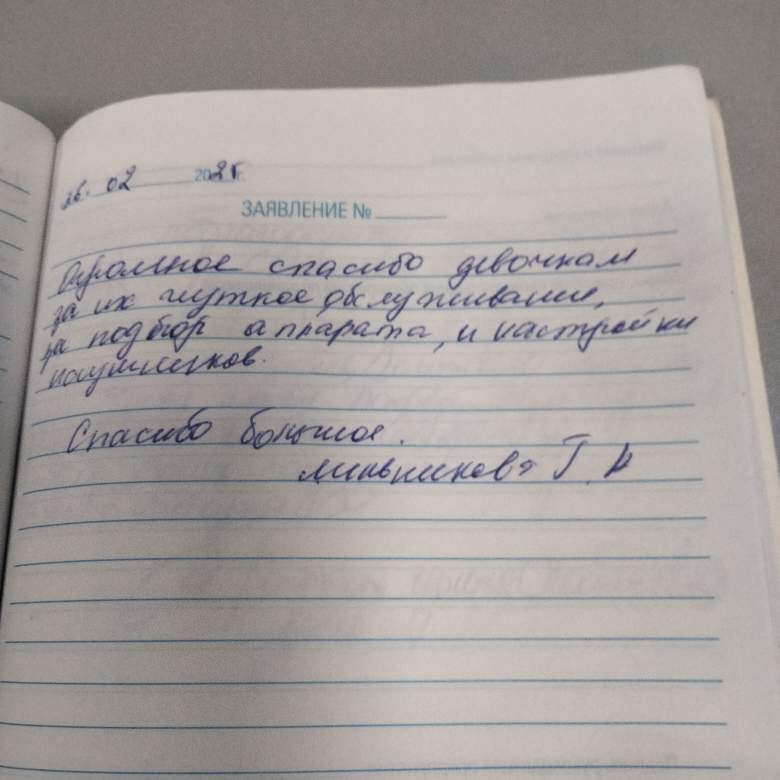 26. 02 2025г.
ЗАЯВЛЕНИЕ №
Огромное спасибо девочкам
за их чуткое обслуживание,
за подбор аппарата, и настройки
наушников.
Спасибо большое.
Мельникова Т. А